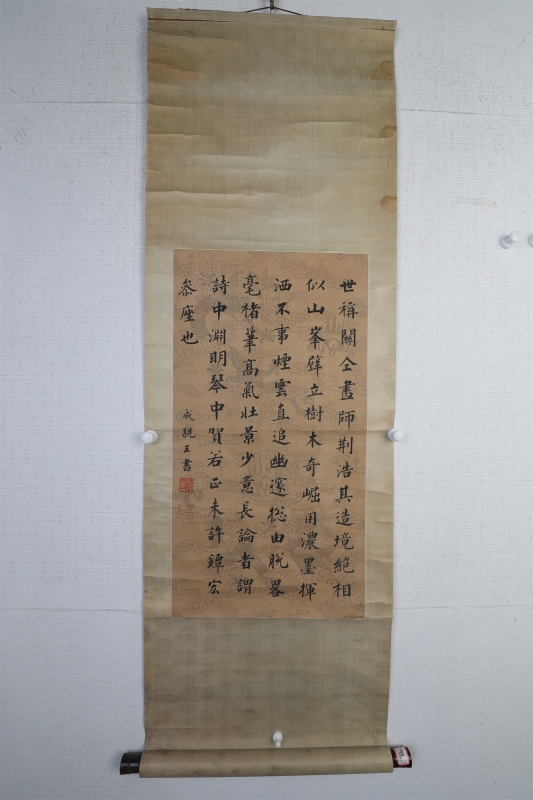 世稱關仝畫師荆浩其造境絶相
似山峯壁立樹木奇崛用濃墨揮
洒不事煙雲直追幽邃総由脱畧
毫楮筆高氣壯景少意長論者謂
詩中淵明琴中賀若正未許鐔宏
叅座也
成親王書